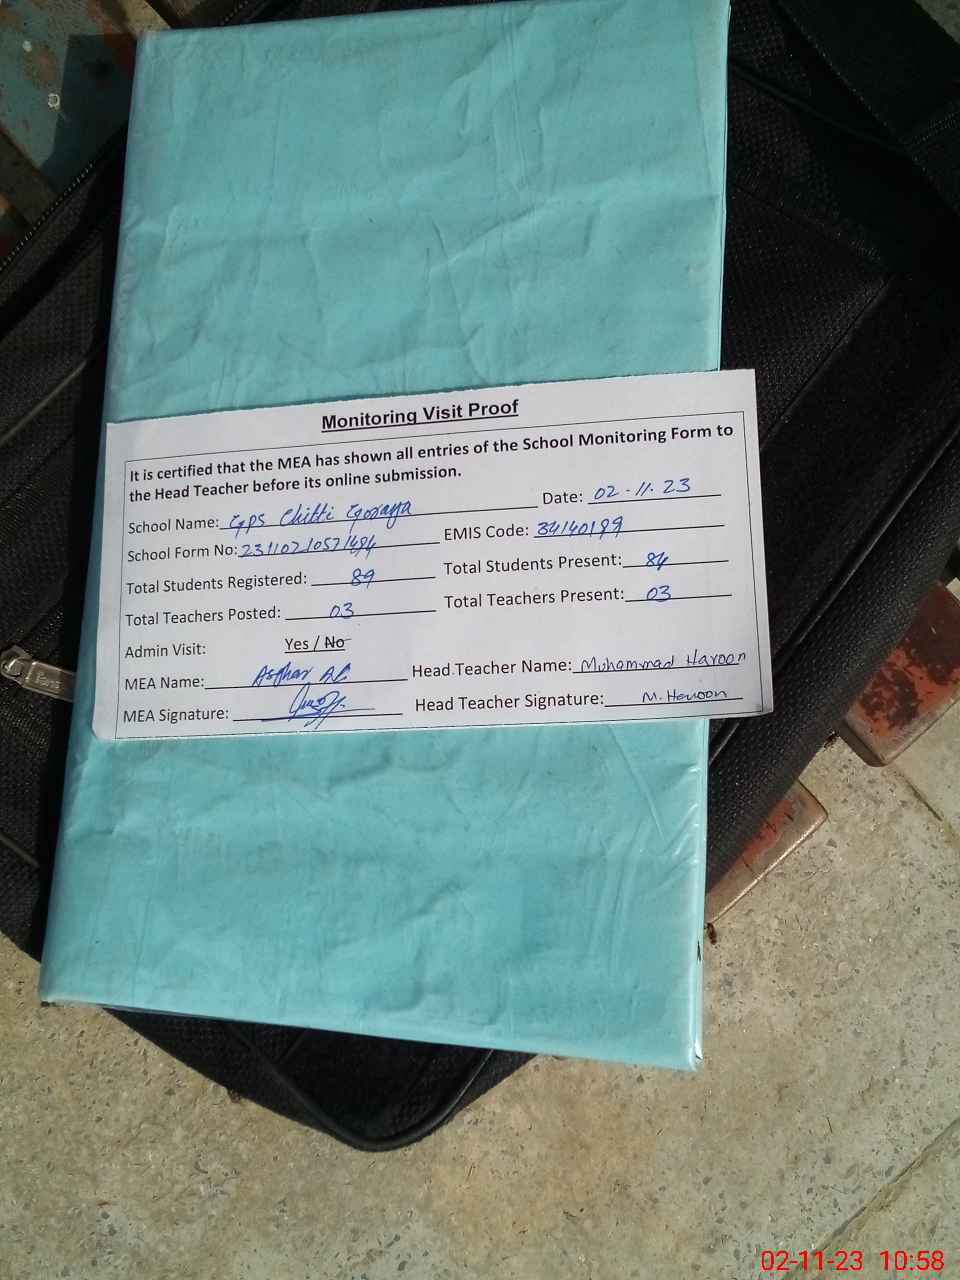 Monitoring Visit Proof
It is certified that the MEA has shown all entries of the School Monitoring Form to
the Head Teacher before its online submission.
School Name: GPS Chitti Goraya Date: 02-11-23
School Form No: 23110210571494 EMIS Code: 34140199
Total Students Registered: 89 Total Students Present: 84
Total Teachers Posted: 03 Total Teachers Present: 03
Admin Visit: Yes / No
MEA Name: Asghar Ali Head Teacher Name: Muhammad Haroon
MEA Signature: Head Teacher Signature: M. Haroon
02-11-23 10:58